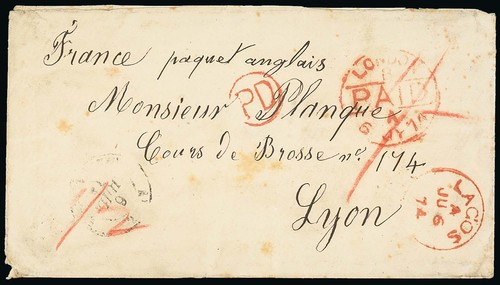 France paquet anglais
Monsieur Planque
Cours de Brosse nº. 174
Lyon
PD
LONDON
PAID
LAGOS
A
JU 6
74